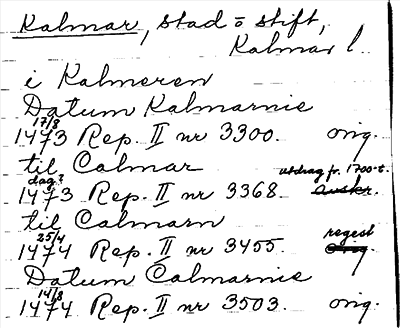 Kalmar, stad o stift,
Kalmar l.
i Kalmeren
Datum Kalmarnie
17/8
1473 Rep. II nr 3300. orig.
til Calmar
dag? utdrag fr. 1700-t.
1473 Rep. II nr 3368. avskr.
til Calmarn
25/4 regest
1474 Rep. II nr 3455. orig
Datum Calmarnie
14/8
1474 Rep. II nr 3503. orig.